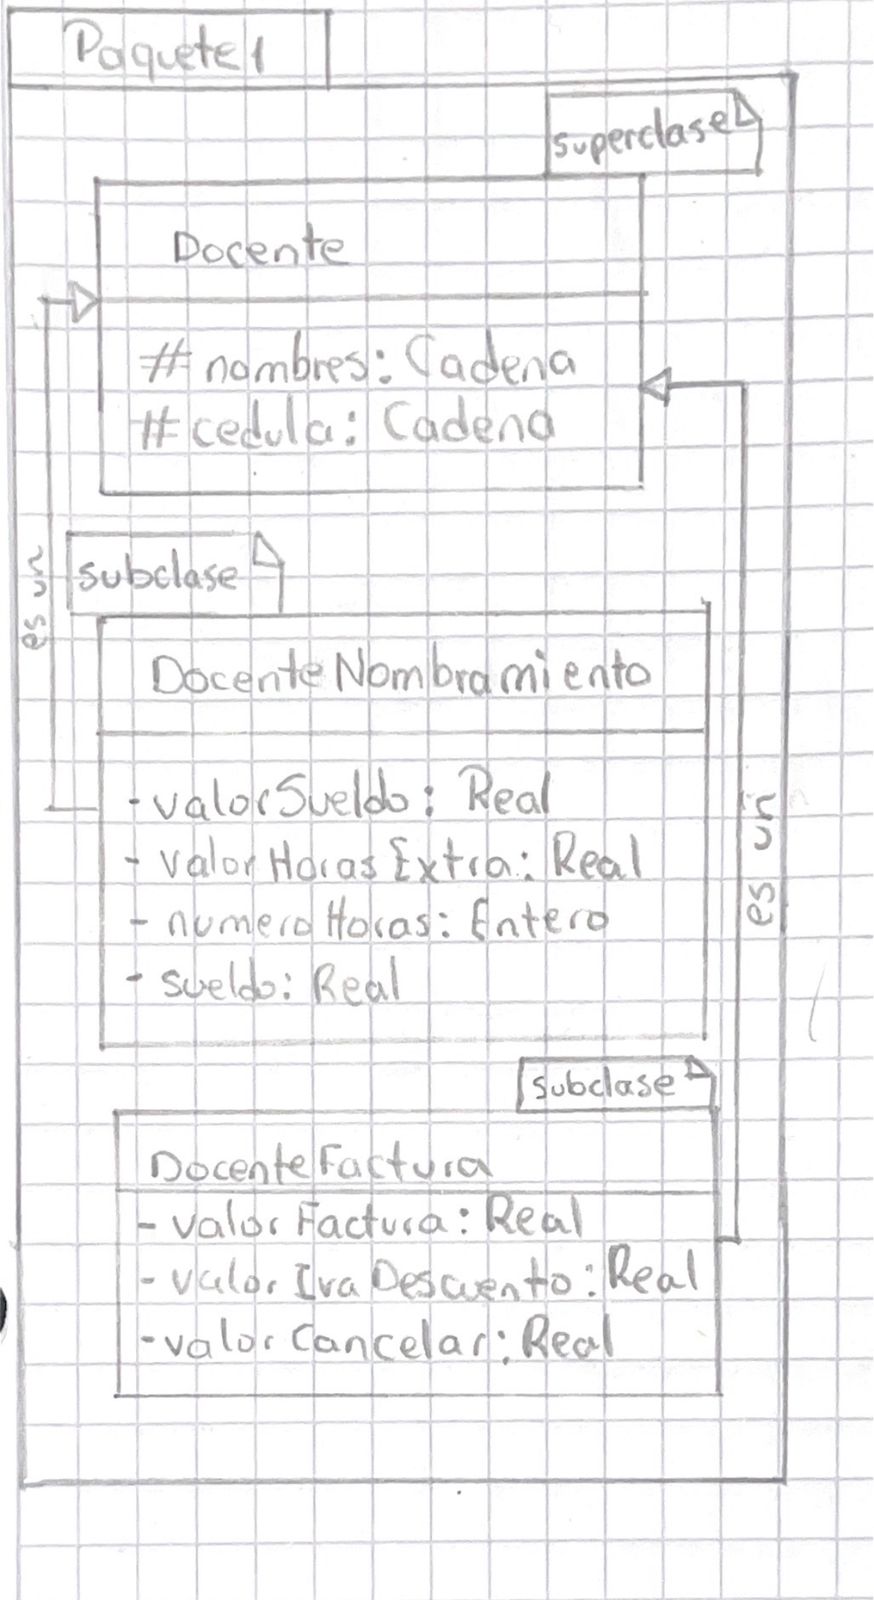 Paquete1
superclase
Docente
# nombres: Cadena
# cedula: Cadena
es un
subclase
DocenteNombramiento
- valorSueldo: Real
- valorHorasExtra: Real
- numeroHoras: Entero
- sueldo: Real
es un
subclase
DocenteFactura
- valorFactura: Real
- valorIvaDescuento: Real
- valorCancelar: Real